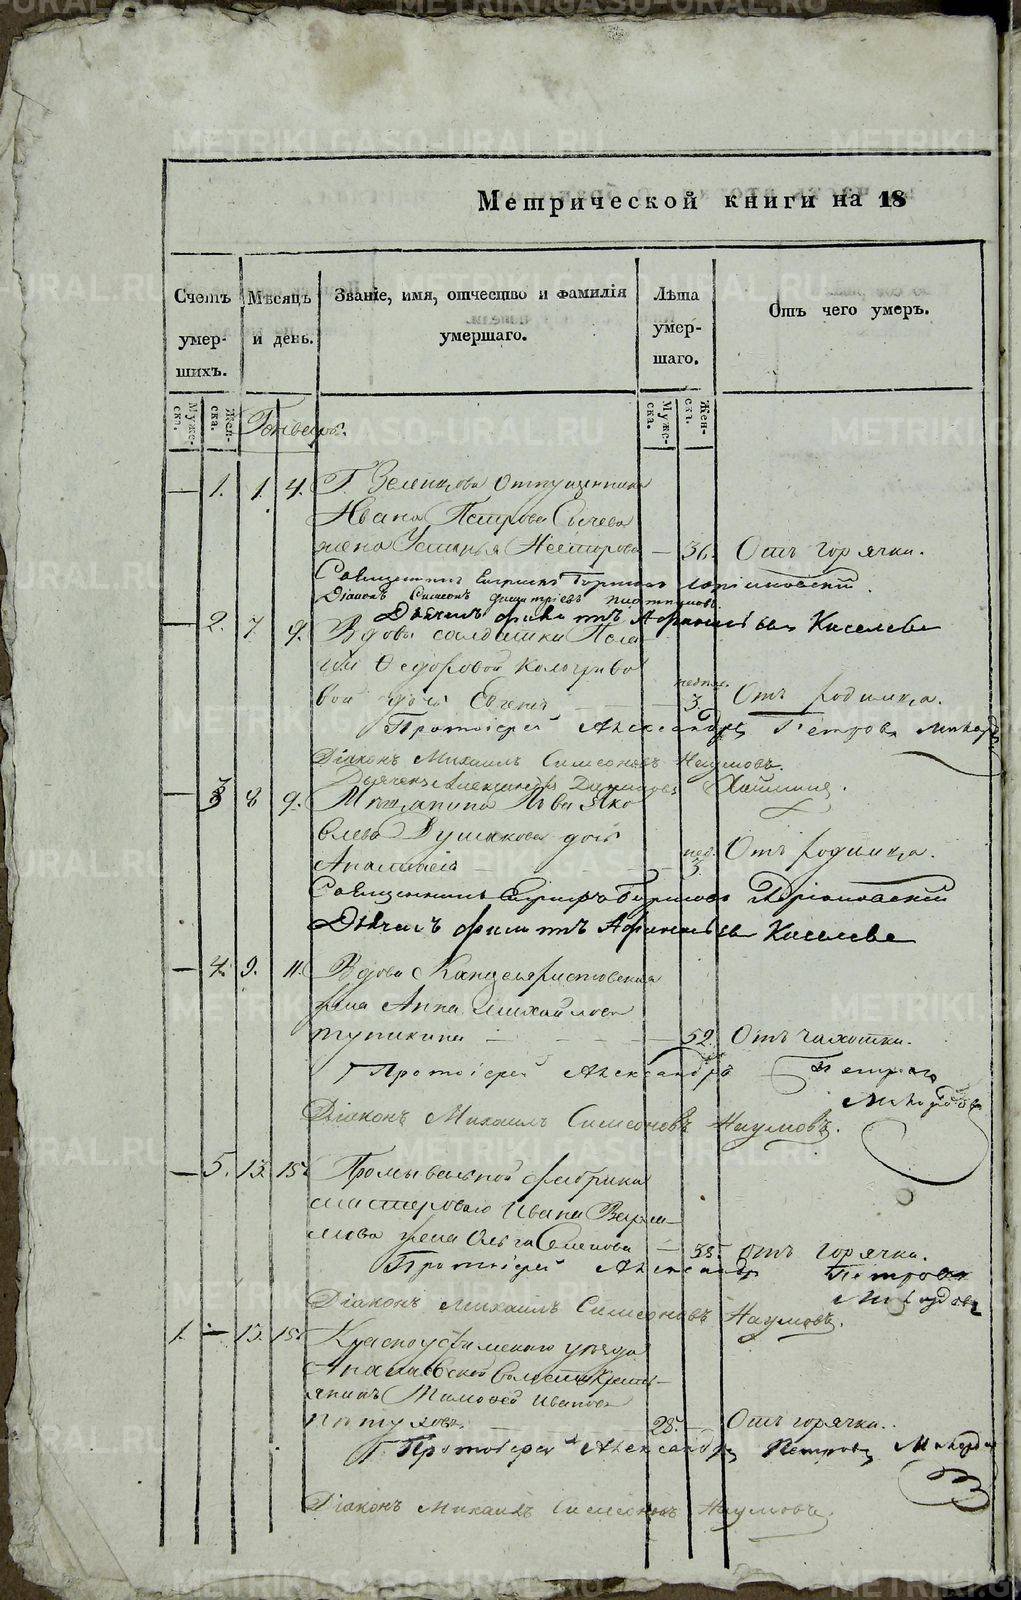 Метрической книги на 18
Счетъ умер- шихъ.
Мѣсяцъ и день.
Званіе, имя, отчество и фамилія умершаго.
Лѣта умер- шаго.
Отъ чего умеръ.
Муже- ска.
Жен- ска.
Генварь.
Муже- ска.
Жен- ска.
— 1. 1. 4. Г. Зеленцова отпущенника
Ивана Петрова Сычева
жена Устинья Несторова — 36. Отъ горячки.
Священникъ
Діаконъ Симеонъ Димитріевъ
Дьячекъ Филиппъ Афанасьевъ Киселевъ
— 2. 7. 9. Вдовы солдатки Пела
гіи Федоровой Кологриво
вой дочь Евгенія — 3 недел. Отъ родимца.
Протоіерей Александръ Петровъ
Діаконъ Михаилъ Симеоновъ Наумовъ.
Дьячекъ Александръ
— 3 8 9. Мѣщанина Льва Яко
влева Душакова дочь
Анастасія — 3. нед. Отъ родимца.
Священникъ
Дьячекъ Филиппъ Афанасьевъ Киселевъ
— 4. 9. 11. Вдова Канцеляристовская
жена Анна Михайлова
Тупикина — 52. Отъ чахотки.
Протоіерей Александръ Петровъ
Діаконъ Михаилъ Симеоновъ Наумовъ.
— 5. 13. 15. Промывальной фабрики
мастероваго Ивана Варла-
мова жена Ольга Семенова — 35. Отъ горячки.
Протоіерей Александръ Петровъ
Діаконъ Михаилъ Симеоновъ Наумовъ.
1. — 13. 15. Красноуфимскаго уѣзда
волости Кресть-
янинъ Тимофей Ивановъ
Пѣтуховъ. 28. — Отъ горячки.
Протоіерей Александръ Петровъ
Діаконъ Михаилъ Симеоновъ Наумовъ.
METRIKI.GASO-URAL.RU